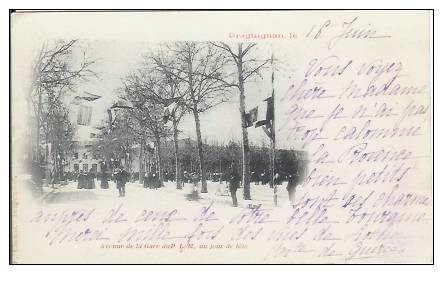 Draguignan, le 16 Juin
Vous voyez
chère Madame
que je n'ai pas
trop calomnié
la Provence
bien petits
sont ses charmes
auprès de ceux de votre belle Touraine
Merci mille fois des vues de
Ctesse de
Avenue de la Gare du P. L. M. un jour de fête